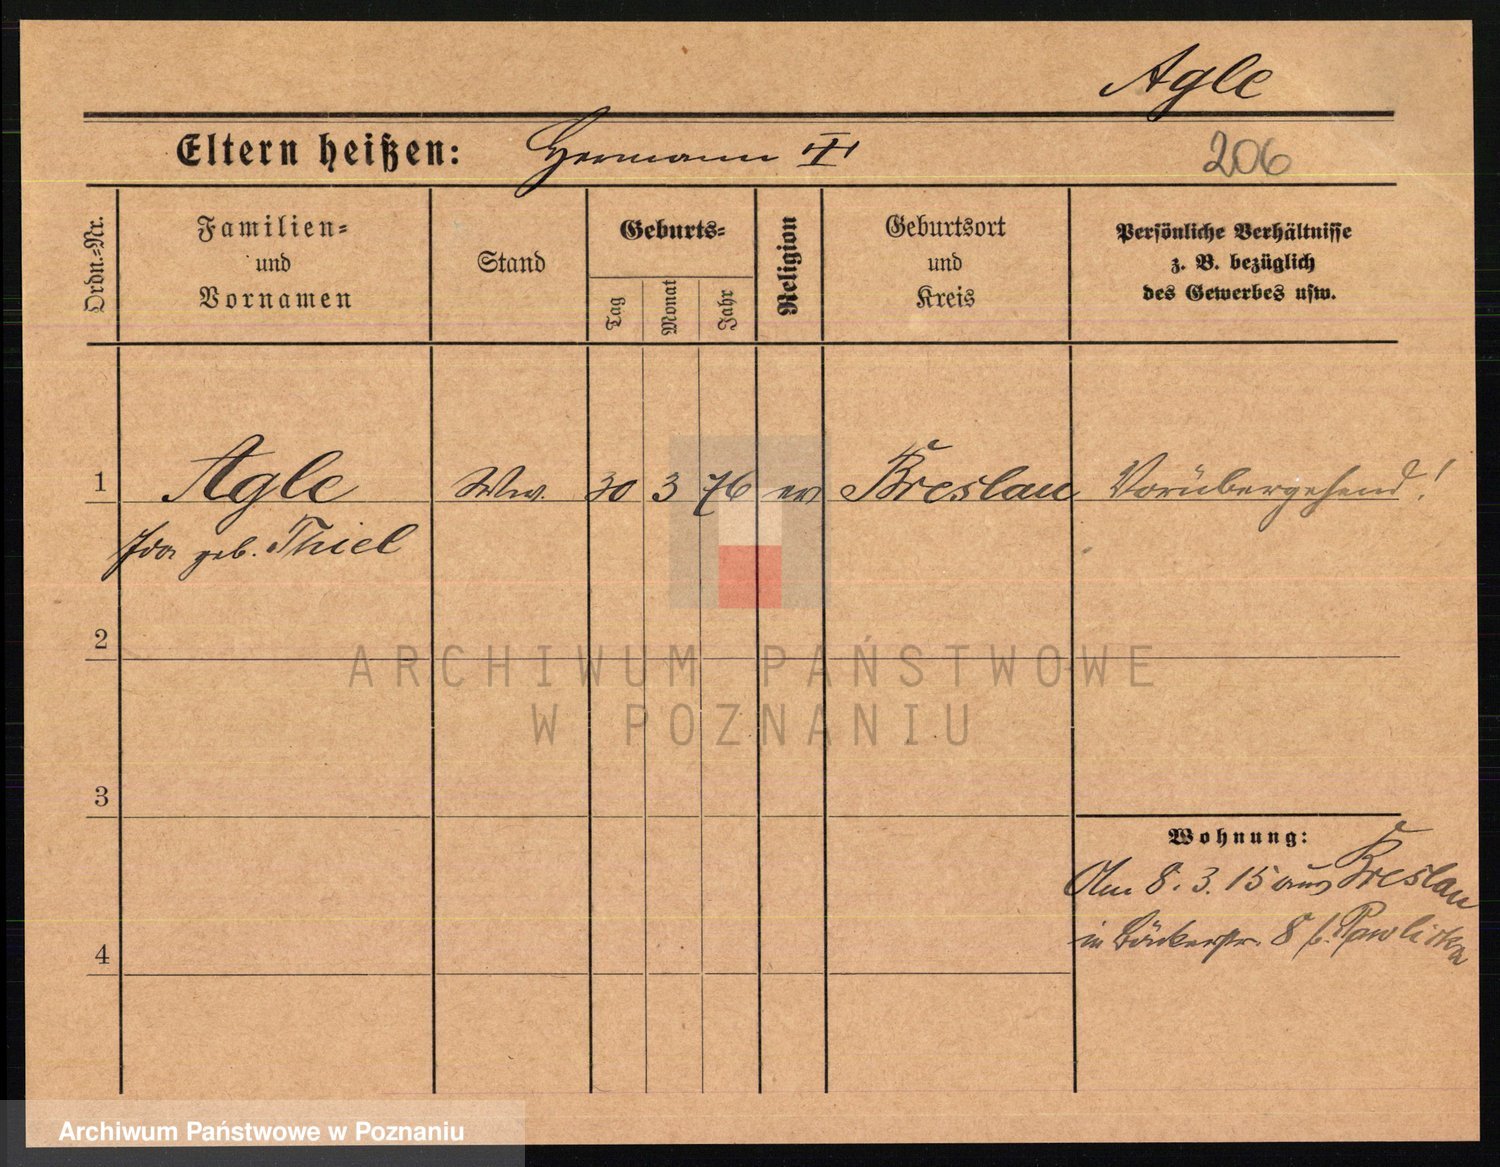 Agle
Eltern heißen: Hermann
206
Ordn.-Nr.
Familien-
und
Vornamen
Stand
Geburts-
Tag
Monat
Jahr
Religion
Geburtsort
und
Kreis
Persönliche Verhältnisse
z. B. bezüglich
des Gewerbes usw.
1 Agle Ww. 30 3 76 ev Breslau Vorübergehend!
Ida geb. Thiel
2
3
4
Wohnung:
Am 8. 3. 15 aus Breslau
in Bäckerstr. 8 b.
ARCHIWUM PAŃSTWOWE
W POZNANIU
Archiwum Państwowe w Poznaniu